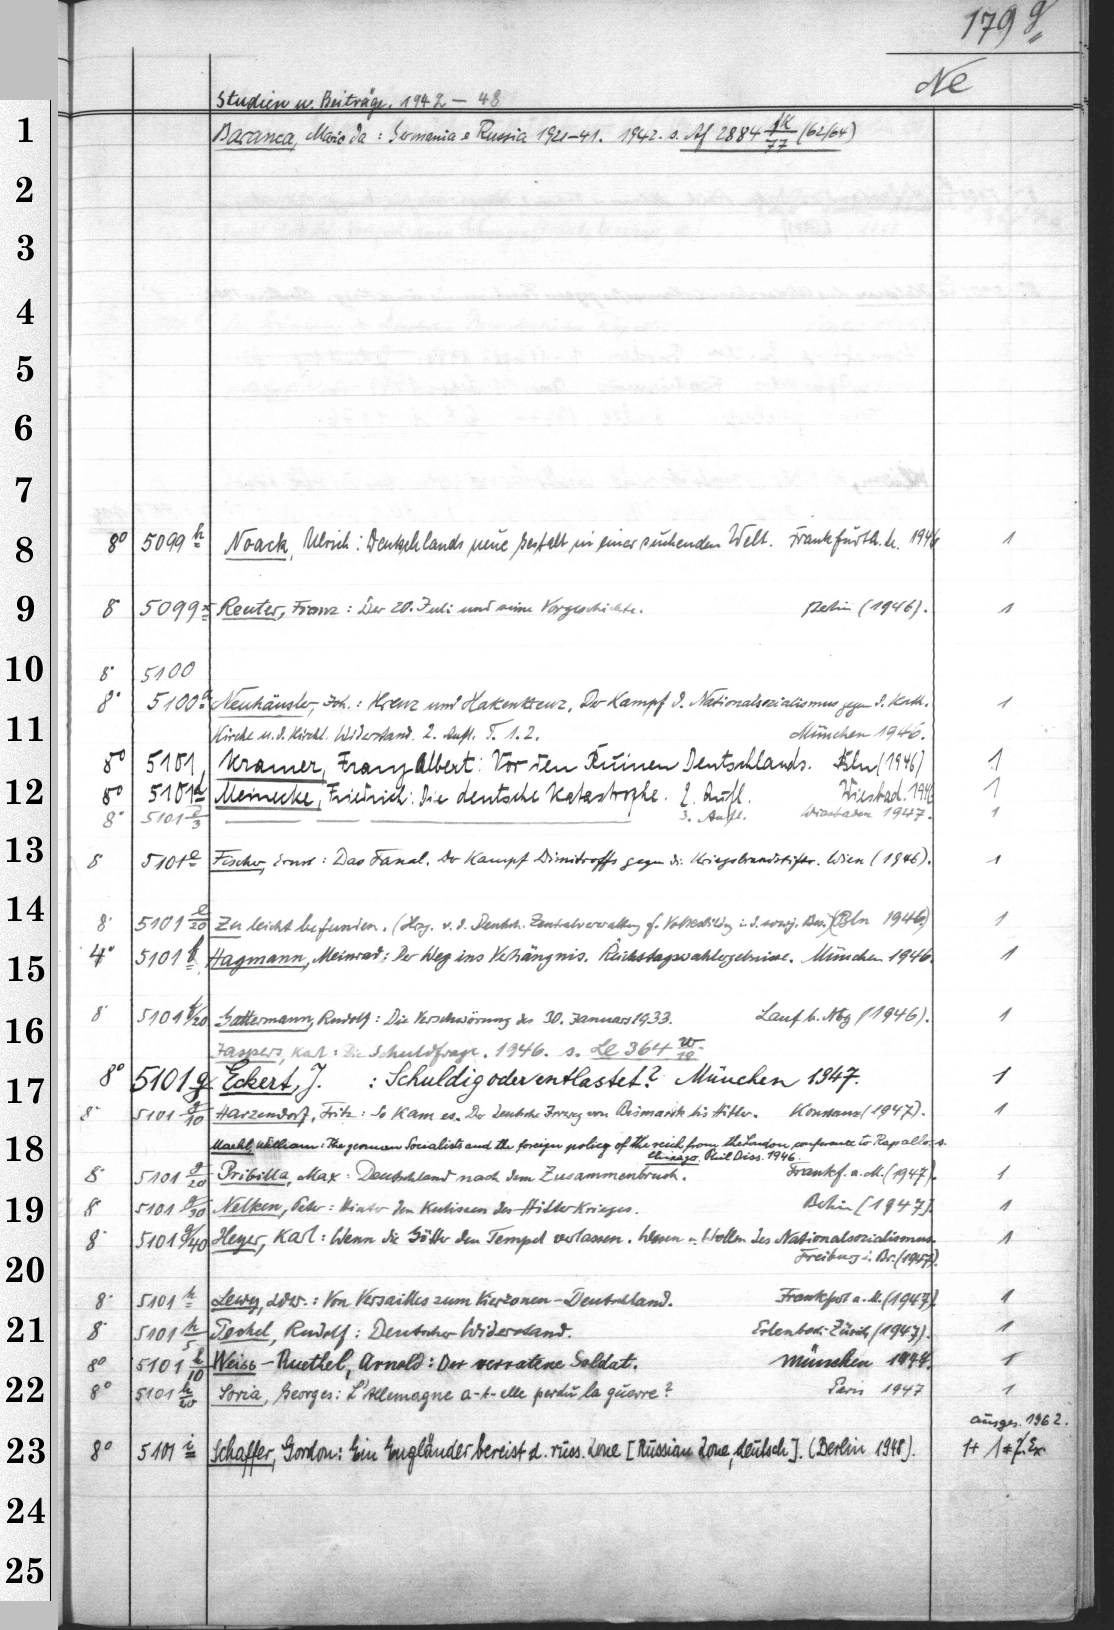 179 g
Ne
Studien u. Beiträge. 1942 – 48
1 Baranca, Mario da : Germania e Russia 1921–41. 1942. s. Af 2884 fk/77 (62/64)
2
3
4
5
6
7
8 8° 5099 h Noack, Ulrich : Deutschlands neue Gestalt in einer suchenden Welt. Frankfurt a. M. 1946 1
9 8° 5099 x Reuter, Franz : Der 20. Juli und seine Vorgeschichte. Berlin (1946). 1
10 8° 5100
8° 5100 a Neuhäusler, Joh. : Kreuz und Hakenkreuz. Der Kampf d. Nationalsozialismus gegen d. Kath. 1
11 Kirche u. d. Kirchl. Widerstand. 2. Aufl. T. 1. 2. München 1946.
8° 5101 Kramer, Franz Albert : Vor den Ruinen Deutschlands. (1946) 1
12 8° 5101 d Meinecke, Friedrich : Die deutsche Katastrophe. 2. Aufl. Wiesbad. 1946 1
8° 5101 d/3 3. Aufl. Wiesbaden 1947. 1
13 8° 5101 e Fischer, Ernst : Das Fanal. Der Kampf Dimitroffs gegen die Kriegsbrandstifter. Wien (1946). 1
14 8° 5101 e/20 Zu leicht befunden. (Hrg. v. d. Deutsch. Zentralverwaltung f. Volksbildg i. d. sowj. Bes.) (Bln 1946) 1
15 4° 5101 f Hagmann, Meinrad : Der Weg ins Verhängnis. Reichstagswahlergebnisse. München 1946. 1
16 8° 5101 f/20 Gattermann, Rudolf : Die Verschwörung des 30. Januars 1933. Lauf b. Nbg (1946). 1
Jaspers, Karl : Die Schuldfrage. 1946. s. Le 364 w/12
17 8° 5101 g Eckert, J. : Schuldig oder entlastet? München 1947. 1
8° 5101 g/10 Harzendorf, Fritz : So kam es. Der deutsche Irrweg von Bismarck bis Hitler. Konstanz (1947). 1
18 Maehl, William : The german Socialists and the foreign policy of the reich from the London conference to Rapallo. s.
Chicago, Phil. Diss. 1946.
8° 5101 g/20 Pribilla, Max : Deutschland nach dem Zusammenbruch. Frankf. a. M. (1947). 1
19 8° 5101 g/30 Nelken, Peter : Hinter den Kulissen des Hitler Krieges. Berlin [1947]. 1
8° 5101 g/40 Heyer, Karl : Wenn die Götter den Tempel verlassen. Wesen u. Wollen des Nationalsozialismus. 1
20 Freiburg i. Br. (1947).
8° 5101 h Lewy, Edw. : Von Versailles zum Vierzonen-Deutschland. Frankfurt a. M. (1947). 1
21 8° 5101 h/5 Pechel, Rudolf : Deutscher Widerstand. Erlenbach-Zürich (1947). 1
8° 5101 h/10 Weiss-Ruethel, Arnold : Der verratene Soldat. München 1947. 1
22 8° 5101 h/20 Soria, Georges : L'Allemagne a-t-elle perdu la guerre? Paris 1947 1
ausges. 1962.
23 8° 5101 i Schaffer, Gordon : Ein Engländer bereist d. russ. Zone [Russian Zone, deutsch]. (Berlin 1948). 1+ 1 + 2. Ex
24
25